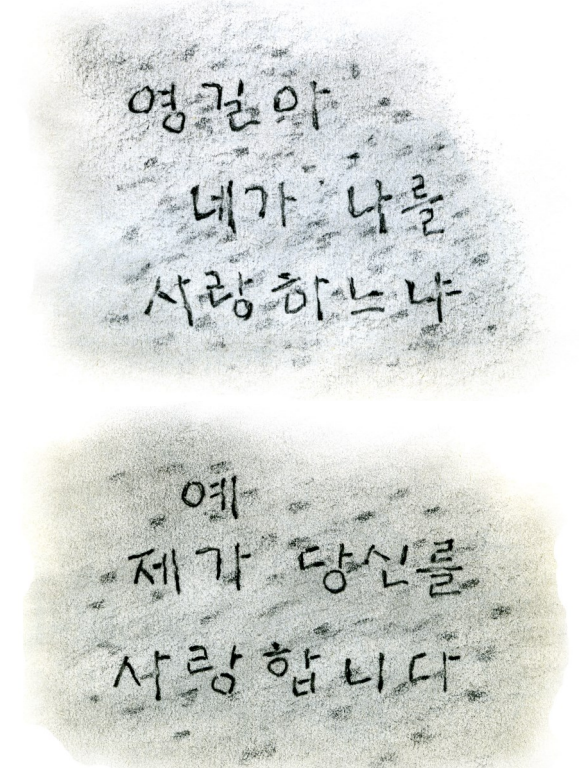 영길아
네가 나를
사랑하느냐
예
제가 당신를
사랑합니다